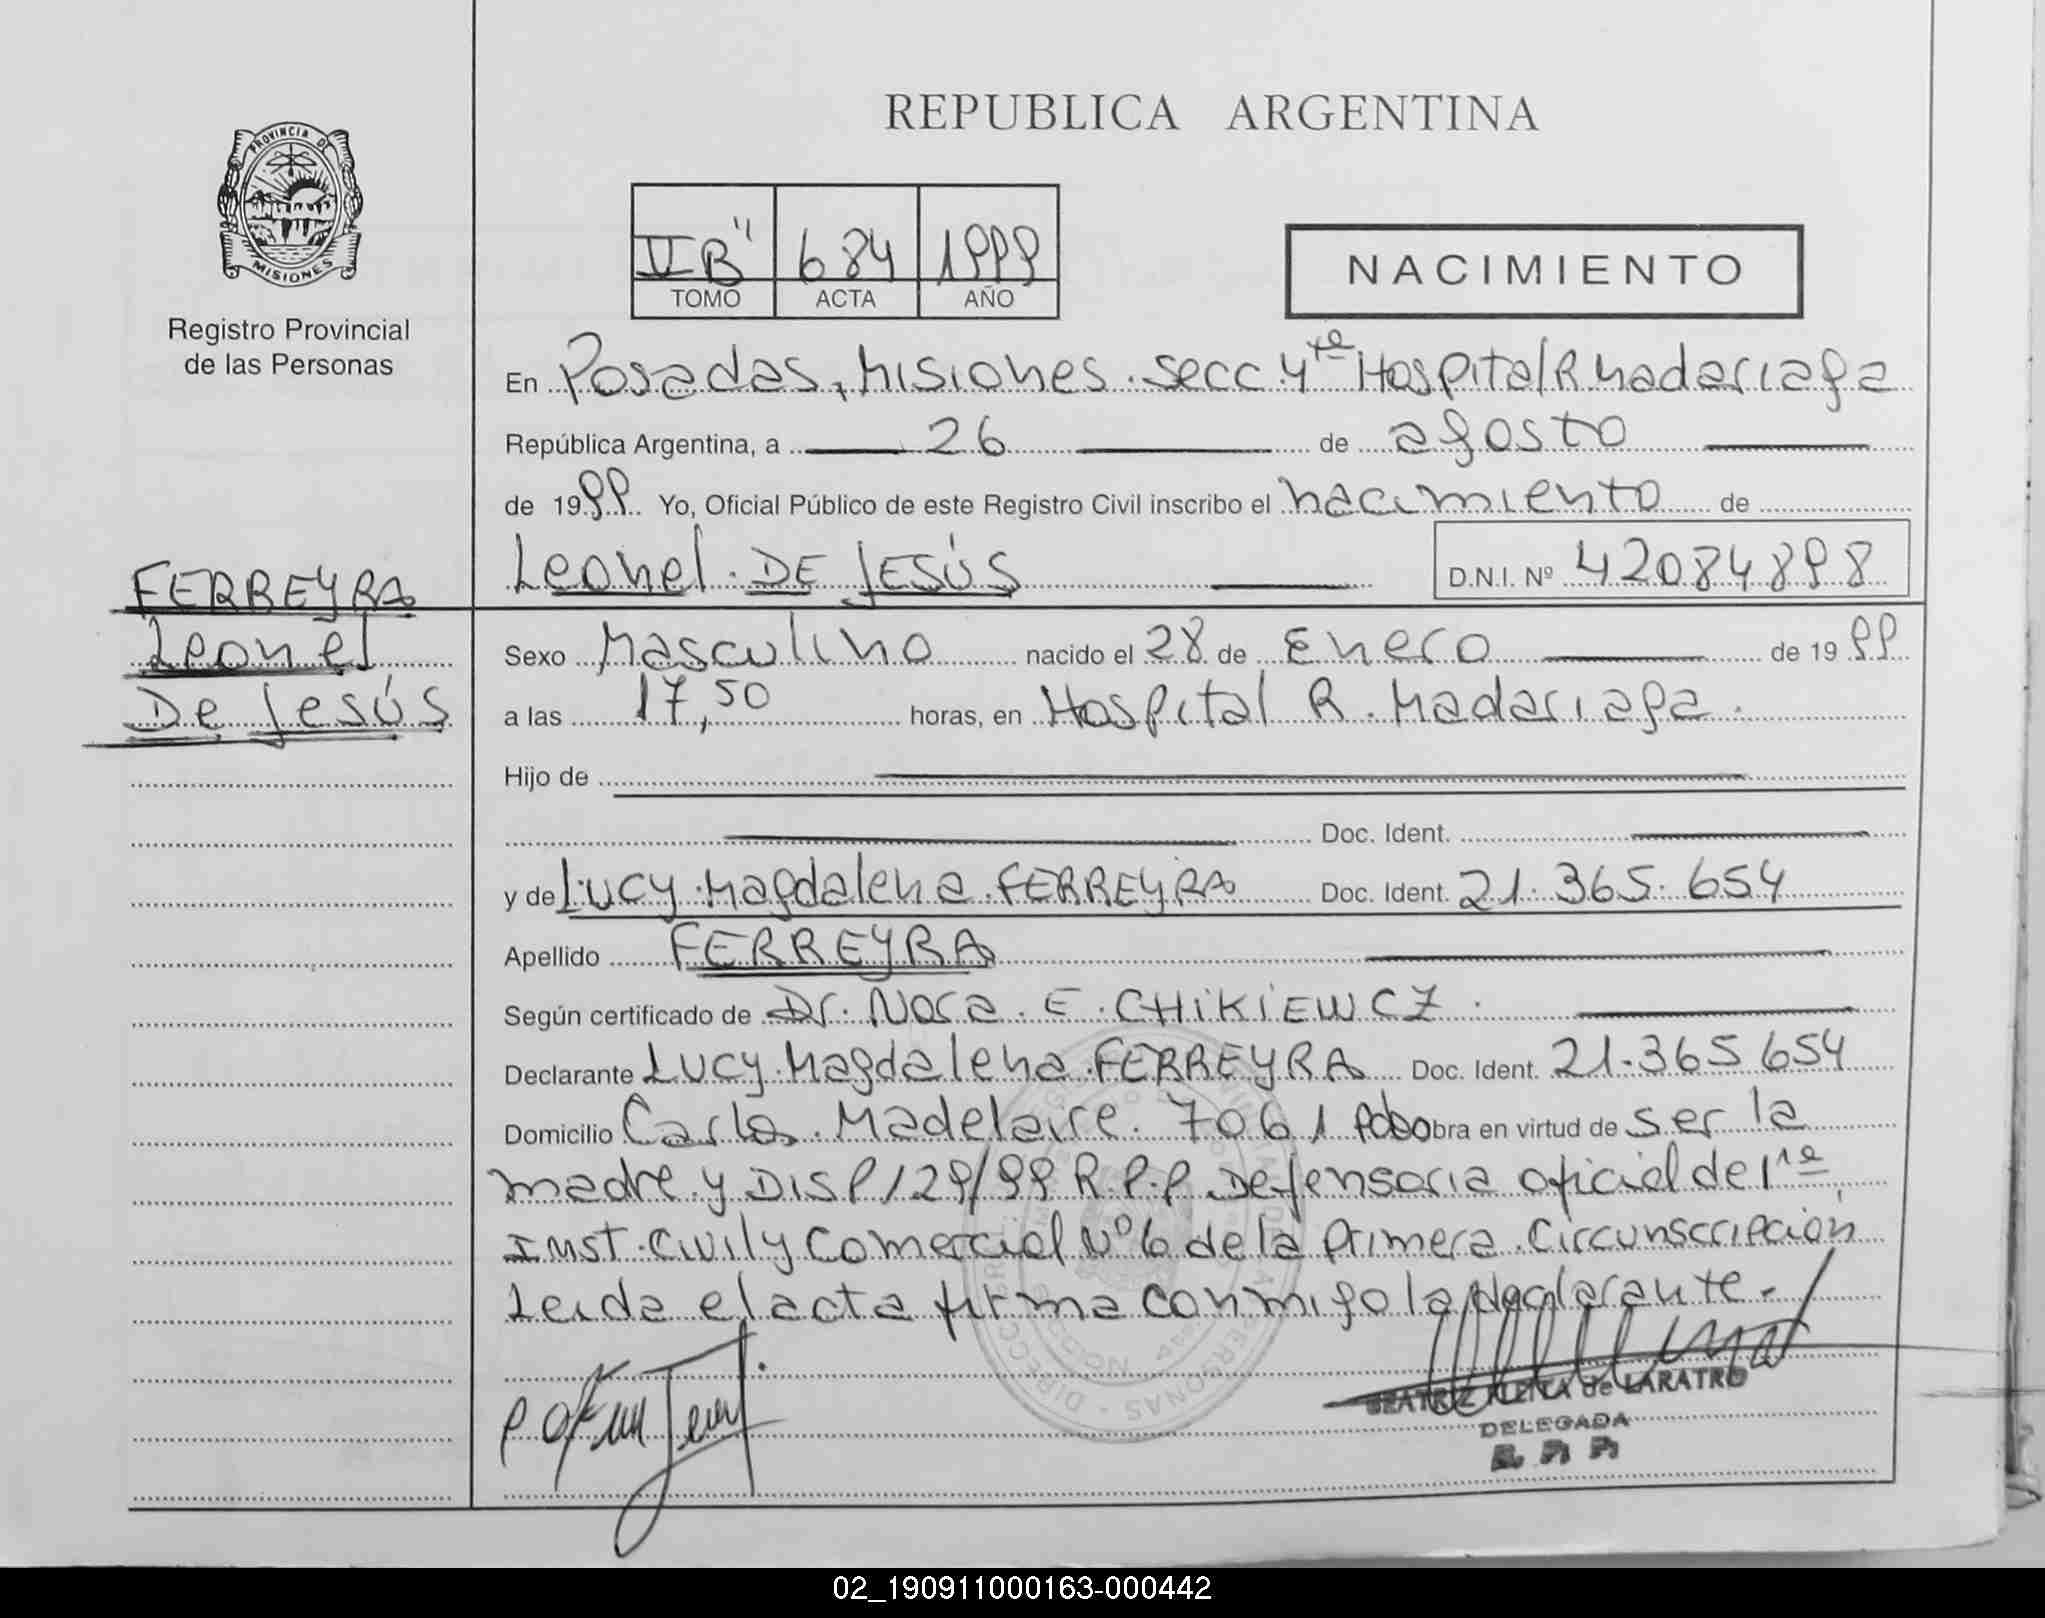 REPUBLICA ARGENTINA
PROVINCIA DE
MISIONES
Registro Provincial
de las Personas
V B" 684 1999
TOMO ACTA AÑO
NACIMIENTO
En Posadas, Misiones. secc. 4ta Hospital R Madariaga
República Argentina, a 26 de agosto
de 1999 Yo, Oficial Público de este Registro Civil inscribo el nacimiento de
Leonel. DE JESÚS D.N.I. Nº 42084898
FERREYRA
Leonel
De Jesús
Sexo Masculino nacido el 28 de Enero de 1999
a las 17,50 horas, en Hospital R. Madariaga.
Hijo de
Doc. Ident.
y de Lucy Magdalena FERREYRA Doc. Ident. 21.365.654
Apellido FERREYRA
Según certificado de Dr. Nora. E. CHIKIEWCZ.
Declarante Lucy Magdalena FERREYRA Doc. Ident. 21.365 654
Domicilio Carlos Madelaire. 7061 Pdo obra en virtud de ser la
madre y DISP 129/99 R.P.P Defensoria oficial de 1ra
Inst. Civil y Comercial Nº 6 de la Primera Circunscripción
Leida el acta firma conmigo la declarante.-
BEATRIZ de LARATRO
DELEGADA
02_190911000163-000442